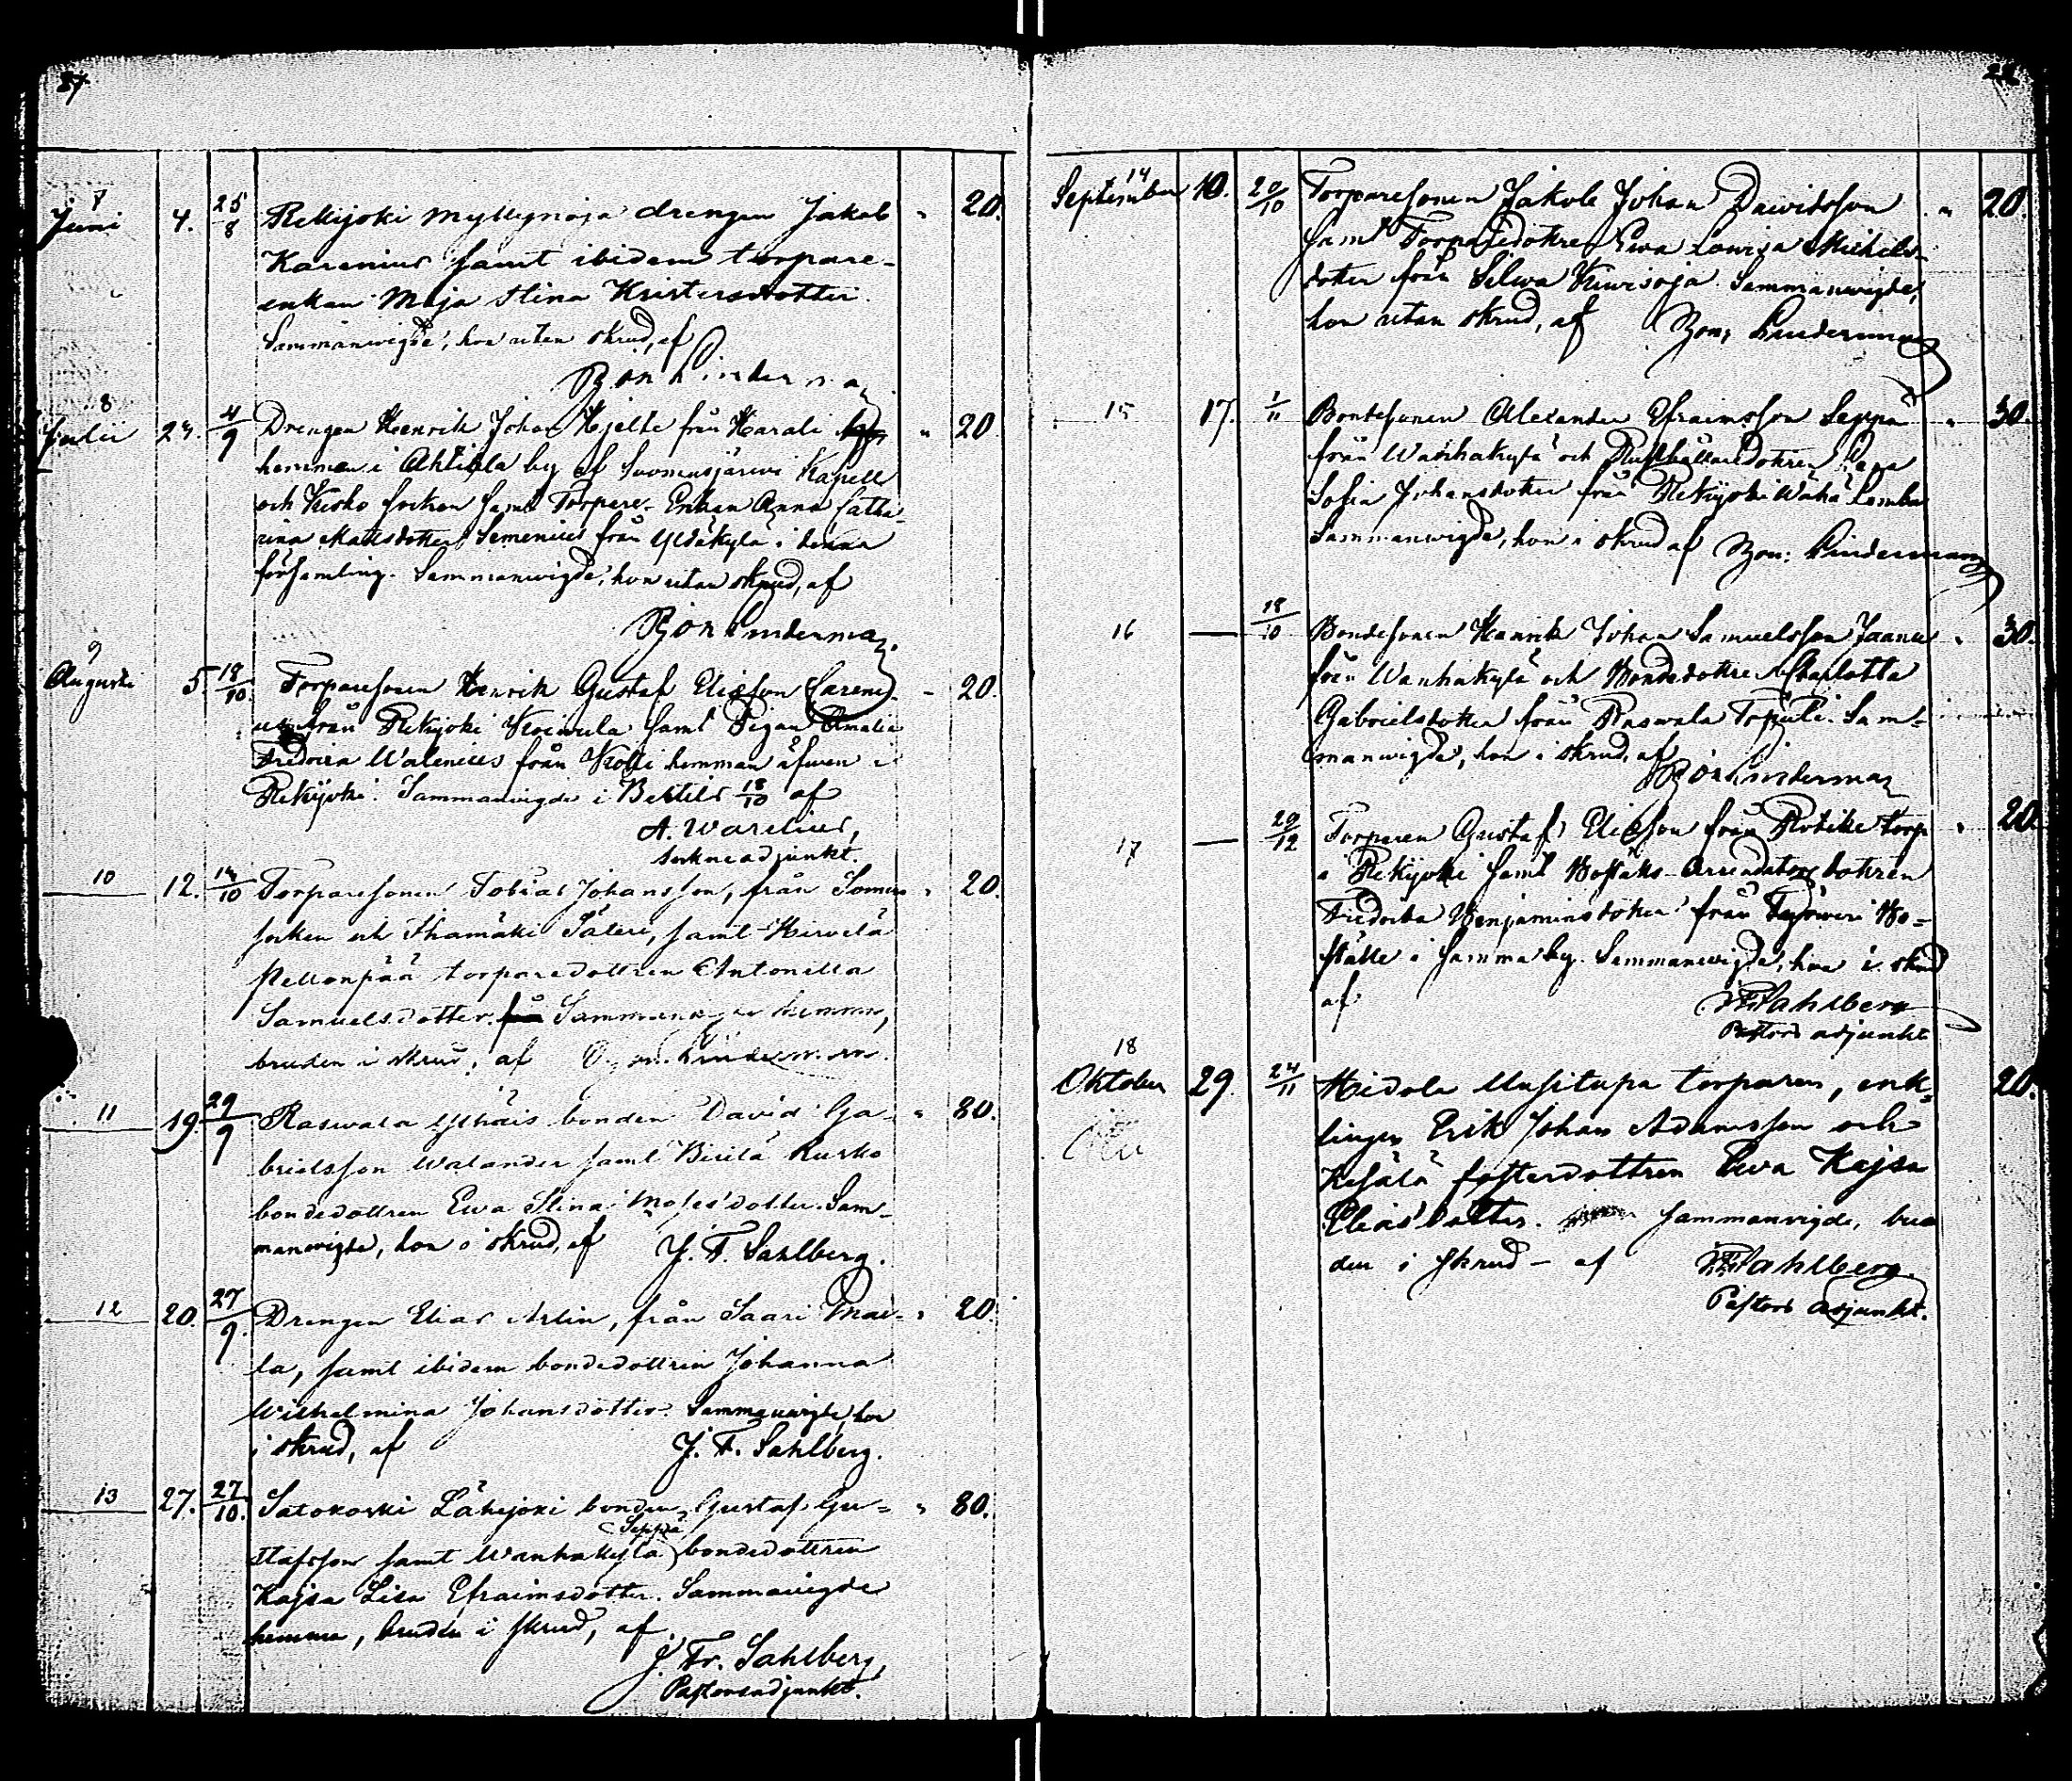 27
7
Juni 4. 25/8 Rekijoki Myllynoja drengen Jakob " 20.
Karenius samt ibidem torpare-
enkan Maja Stina Kristersdotter.
Sammanvigde, hon utan skrud, af
Bjon Linderma
8
Julii 23. 4/9 Drengen Henrik Johan Hjelte från Harali " 20
hemman i Ahtiala by af Suomusjärwi Kapell
och Kisko socken samt Torpare-Enkan Anna Catha-
rina Matsdotter Semenius från Yldäkylä i denna
församling. Sammanwigde, hon utan skrud, af
Bjon Linderman
9
Augusti 5. 18/10. Torparesonen Henrik Gustaf Eliesson Careni- - 20.
us från Rekijoki Koiwula samt Pigan Amalia
Fredrica Walenius från Kolli hemman äfwen i
Rekijoki. Sammanvigde i Bertils 18/10 af
A. Warelius,
sockneadjunkt.
10 12. 14/10 Torparesonen Tobias Johansson, från Somero " 20.
socken och Ihamäki Säteri, samt Hirvelä
Pellonpää torparedottren Antonetta
Samuelsdotter. Sammanvigde hemma,
bruden i skrud, af Bjon. Linderman.
11 19. 29/9 Raswala Ylhäis bonden David Ga- " 80.
brielsson Walander samt Kurko
bondedottren Ewa Stina Mosesdotter. Sam-
manwigde, hon i skrud, af J. F. Sahlberg.
12 20. 27/9. Drengen Elias Arlin, från Saari Mai- " 20.
la, samt ibidem bondedottren Johanna
Wilhelmina Johansdotter. Sammanvigde, hon
i skrud, af J. F. Sahlberg.
13 27. 27/10. Satokoski Lähijoki bonden Gustaf Gu- " 80.
Seppä
stafsson samt Wanhakylä bondedottren
Kajsa Lisa Efraimsdotter. Sammanvigde
hemma, bruden i skrud, af
J. Fr. Sahlberg,
Pastorsadjunkt.
28
14
September 10. 20/10 Torparesonen Jakob Johan Davidsson " 20.
samt Torparedottren Ewa Lowisa Michels-
dotter från Silwa Kiwisoja. Sammanwigde,
hon utan skrud, af Bjon; Linderman
15 17. 1/11 Bondesonen Alexander Efraimsson Seppä " 30.
från Wanhakylä och Rusthållaredottren
Sofia Johansdotter från Rekijoki Wähä Lemba
Sammanwigde, hon i skrud af Bjon: Linderman
16 — 18/10 Bondesonen Henrik Johan Samuelsson Jaanu " 30.
från Wanhakylä och Bondedottren Charlotta
Gabrielsdotter från Raswala Topuli. Sam-
manwigde, hon i skrud, af
Bjon Linderman
17 — 29/12 Torparen Gustaf Eliesson från torp " 20.
i Rekijoki samt Boställs-Arrendators dottren
Fredrika Benjaminsdotter från Bo-
ställe i samma by. Sammanwigde, hon i skrud
af J F Sahlberg
Pastors adjunkt
18
Oktober 29. 24/11 Hidola Uusitupa torparen, enk- 20.
lingen Erik Johan Adamsson och
Kesälä fosterdottren Ewa Kajsa
Eliasdotter. sammanvigde, bru
den i skrud - af J F Sahlberg.
Pastors adjunkt.